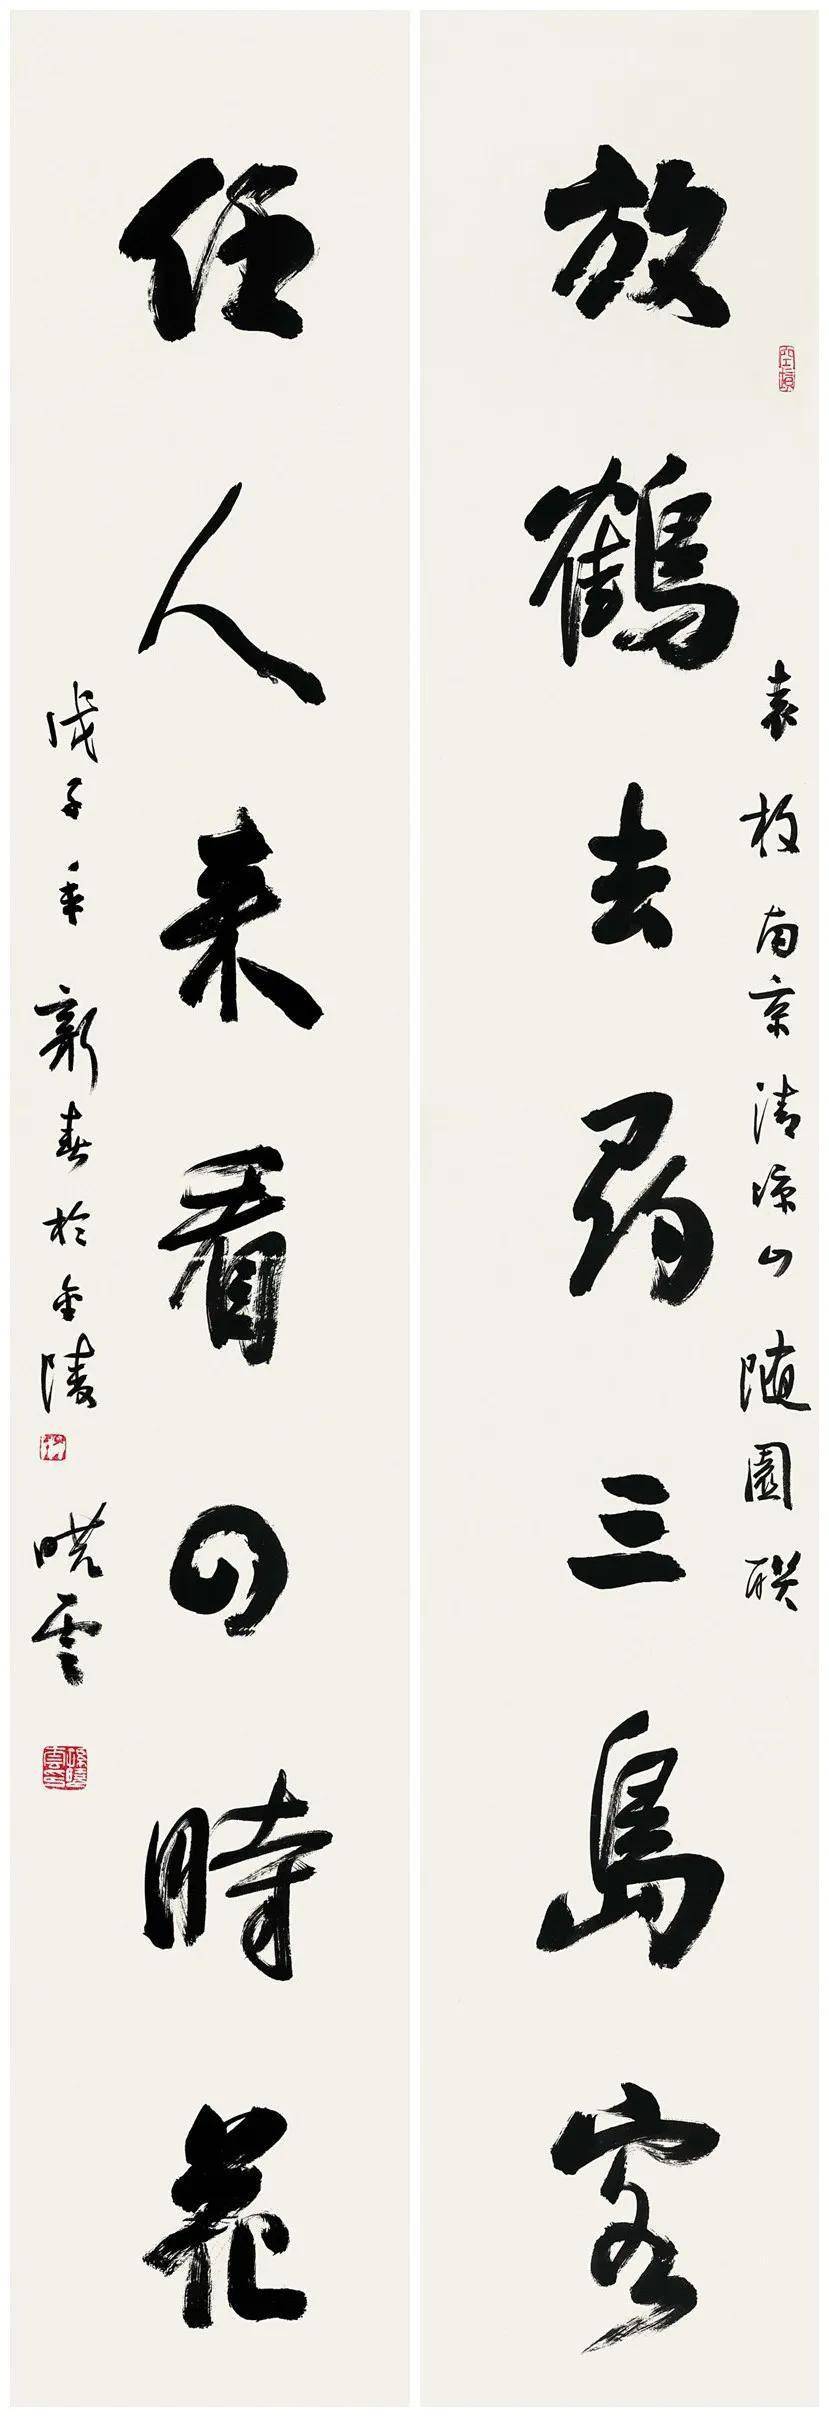 放鶴去尋三島客
袁枚南京清凉山隨園联
任人来看四時花
戊子年新春於金陵
晓雲